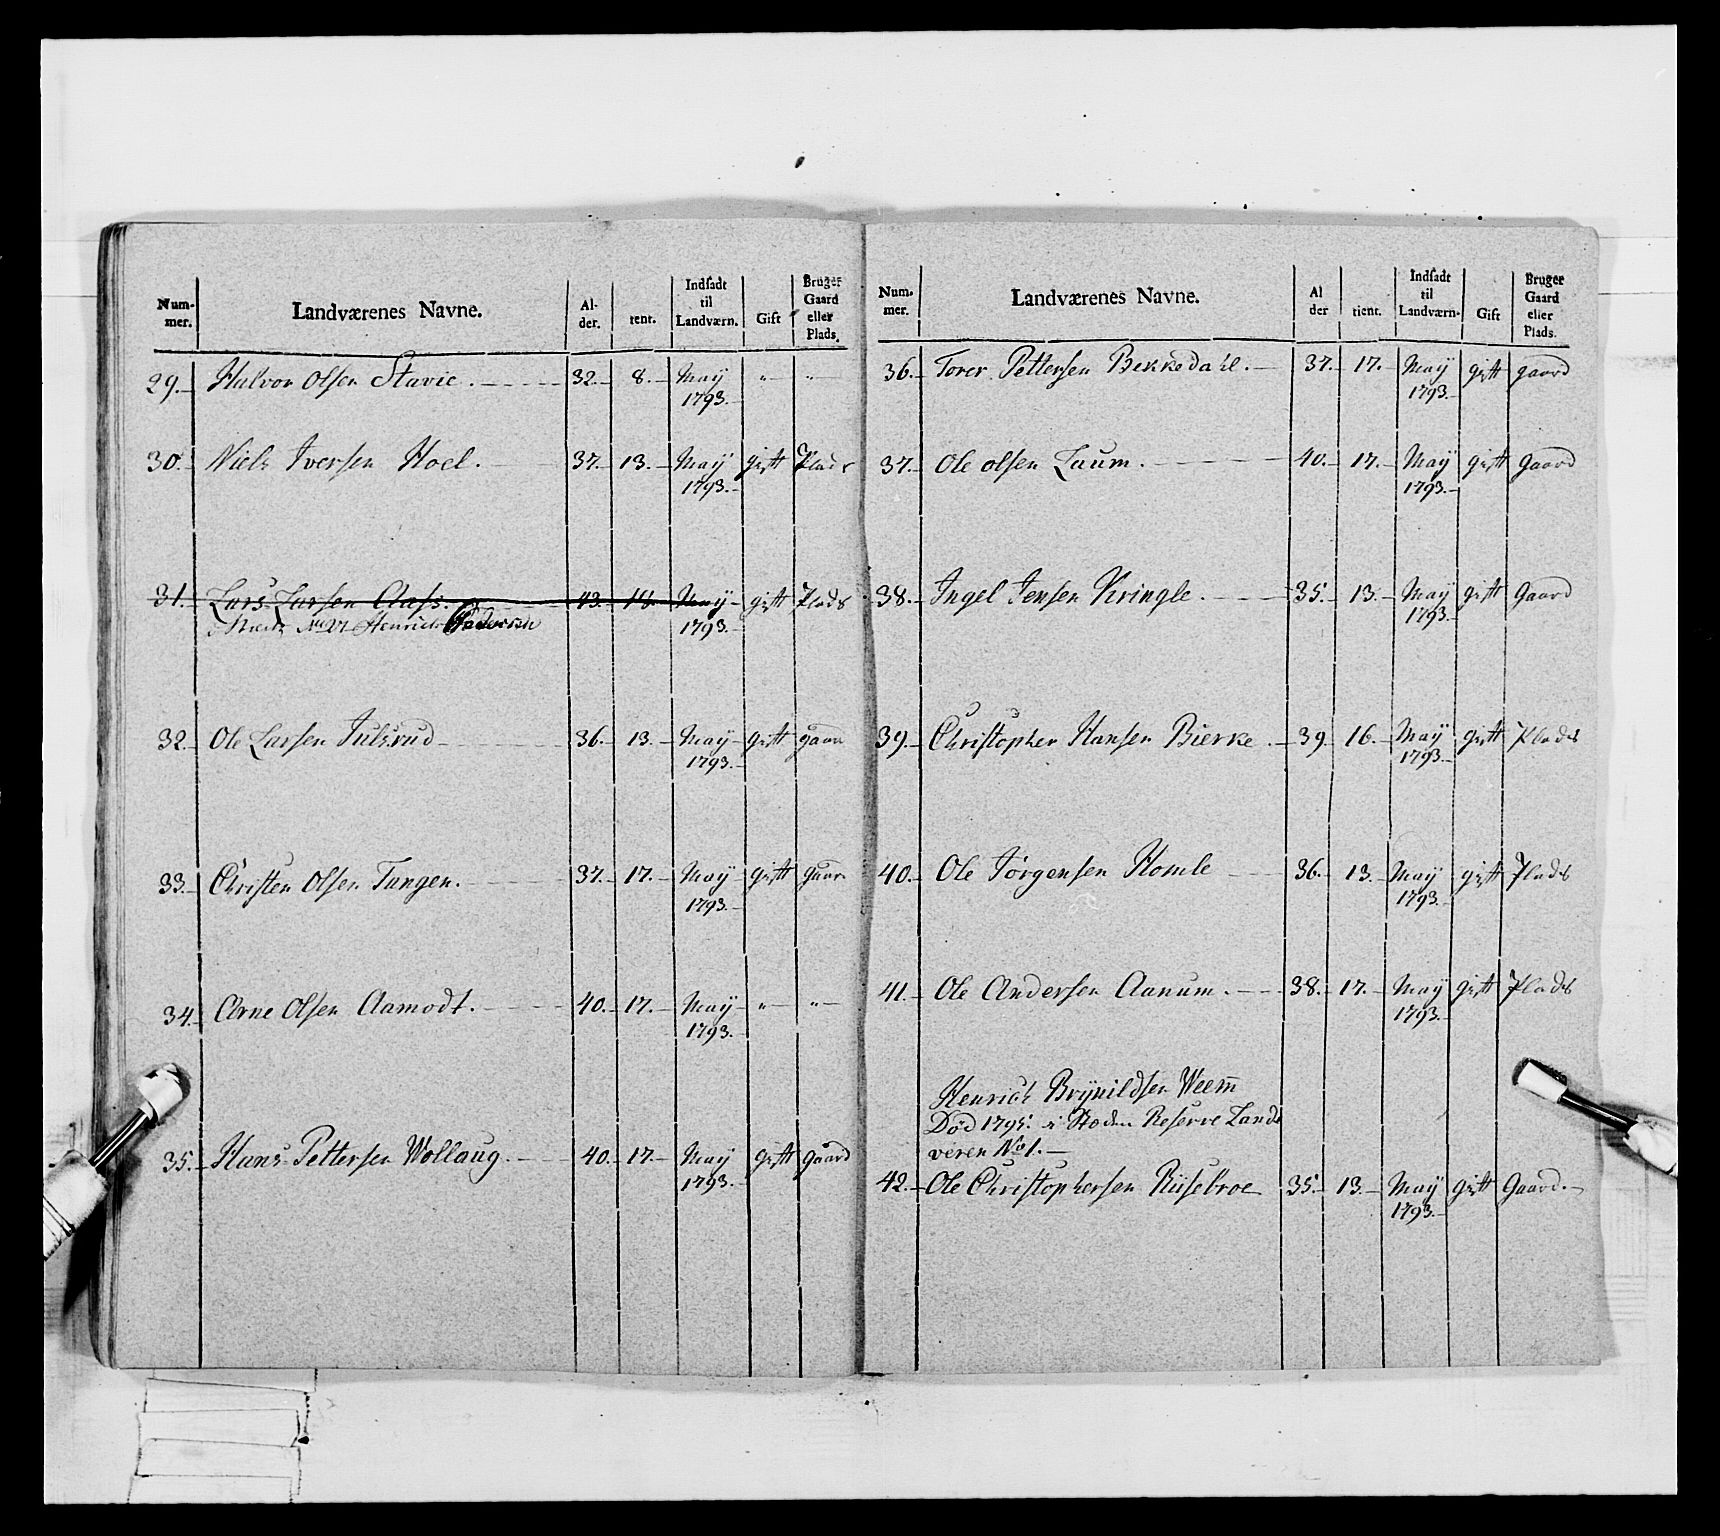 Num-
mer.
Landværenes Navne.
Al-
der.
tent.
Indsadt
til
Landværn.
Gift
Bruger
Gaard
eller
Plads.
29. Halvor Olsen Stavie. 32. 8. May „ „
1793.
30. Niels Iversen Hoel. 37. 13. May gift Plads
1793.
31. Lars Larsen Aass. 43. 14. May gift Plads
Henrich Pedersen 1793.
32. Ole Larsen Julsrud 36. 13. May gift gaar
1793.
33. Christen Olsen Tangen. 37. 17. May gift gaar
1793.
34. Arne Olsen Aamodt. 40. 17. May „ „
1793.
35. Hans Pettersen Wollaug. 40. 17. May gift gaard
1793.
Num-
mer.
Landværenes Navne.
Al
der
tient.
Indsadt
til
Landværn.
Gift
Bruger
Gaard
eller
Plads.
36. Torer Pettersen Bekkedahl. 37. 17. May gift gaard
1793.
37. Ole Olsen Laum. 40. 17. May gift gaard
1793.
38. Ingel Jensen Kringle. 35. 13. May gift Gaard
1793.
39. Christopher Hansen Bierke. 39. 16. May gift Plads
1793.
40. Ole Jørgensen Homle 36. 13. May gift Plads
1793.
41. Ole Andersen Aanum. 38. 17. May gift Plads
1793.
Henrich Brynildsen Weem
Död 1795. i Steden Reserve Land
veren No 1.
42. Ole Christophersen Riisebroe 35. 13. May gift Gaard.
1793.